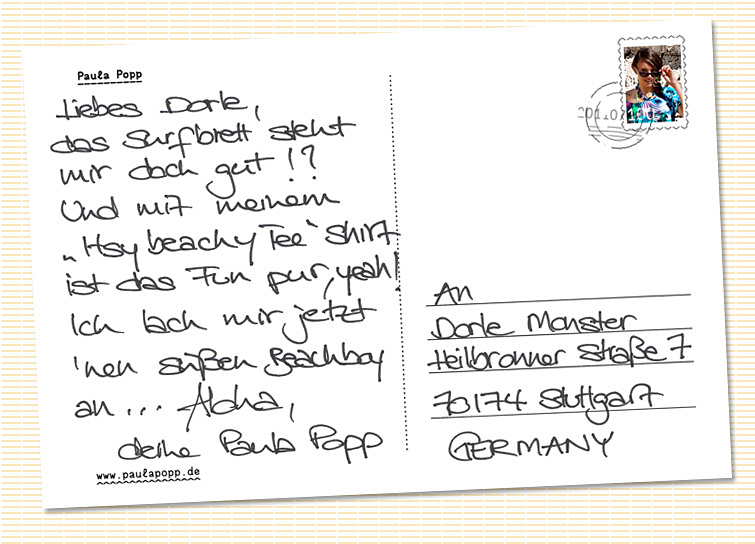 Paula Popp
Liebes Dorle,
das Surfbrett steht
mir doch gut!?
Und mit meinem
„Hey beachy Tee“ Shirt
ist das Fun pur, yeah!
Ich lach mir jetzt
'nen süßen Beachboy
an... Aloha,
deine Paula Popp
www.paulapopp.de
An
Dorle Monster
Heilbronner Straße 7
70174 Stuttgart
GERMANY